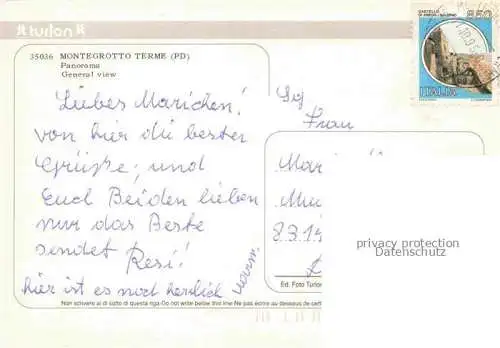 turlon
35036 MONTEGROTTO TERME (PD)
Panorama
General view
Liebes Mariechen!
von hier die besten
Grüße; und
Euch Beiden lieben
nur das Beste
sendet Resi!
hier ist es noch herrlich warm.
Sg
Frau
Mari
Mu
8319
CASTELLO
DI AREChI / SALERNO
850
ITALIA
privacy protection
Datenschutz
Ed. Foto Turlon
Non scrivere al di sotto di questa riga-Do not write below this line Ne pas écrire au dessous de cett